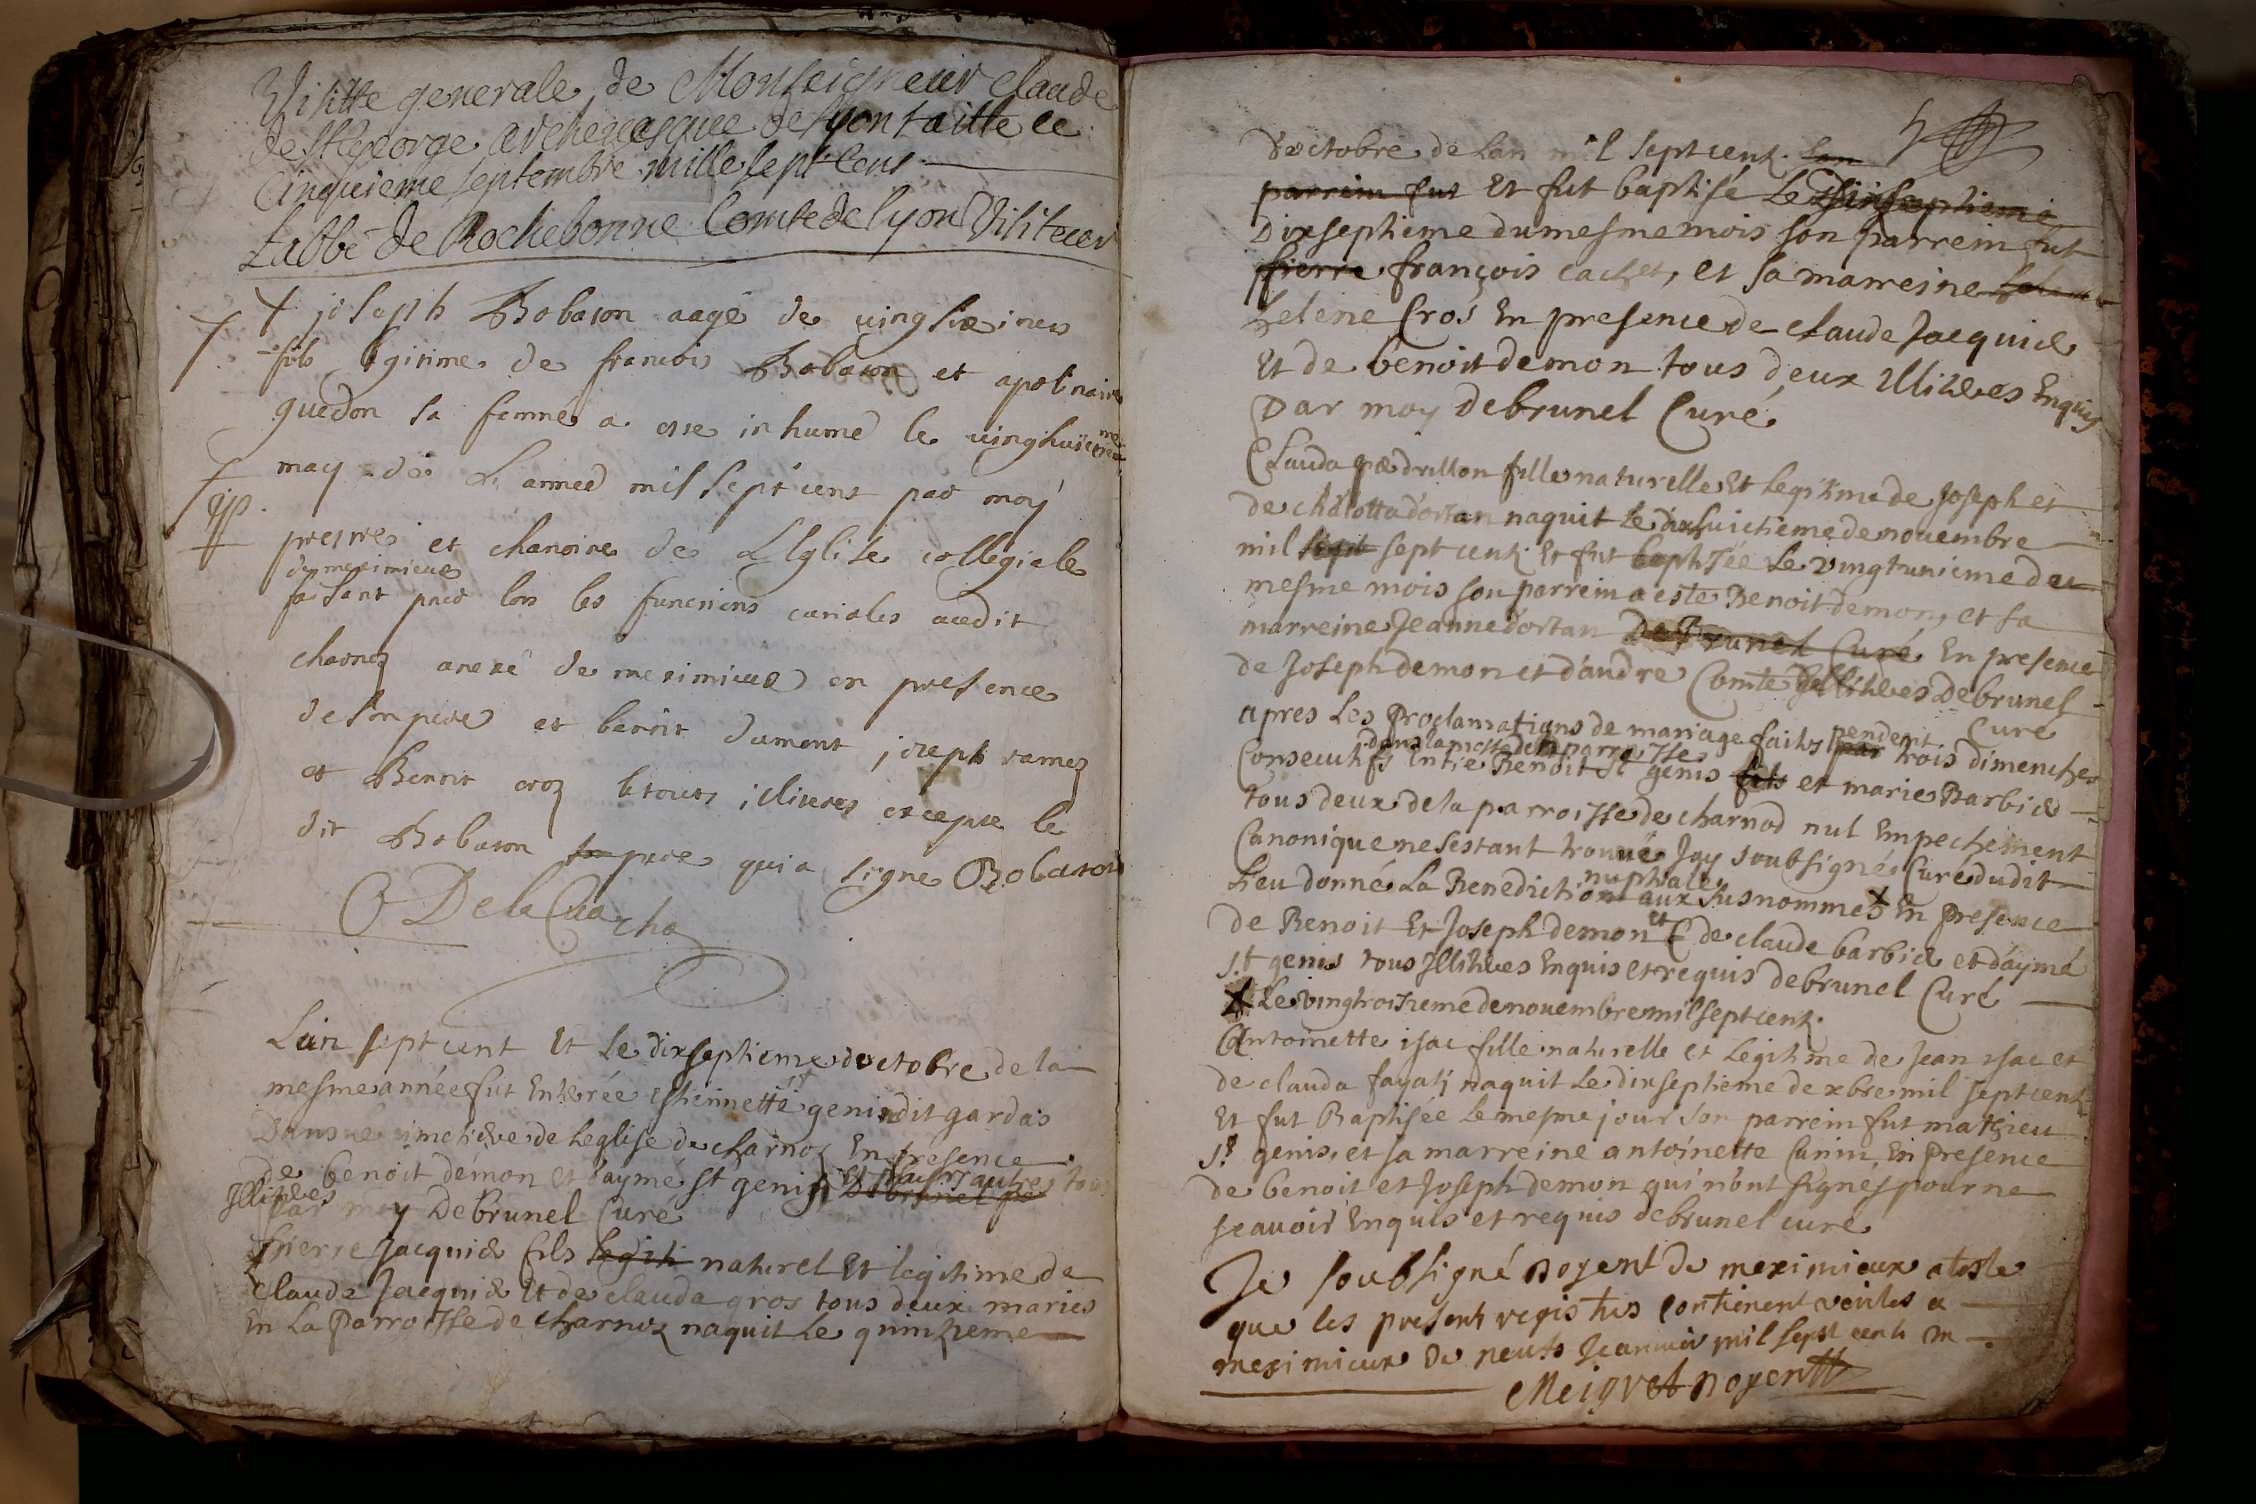 Visitte generale de Monseigneur Claude
de St George archevesque de Lyon faitte ce
Cinquieme septembre mille sept cens
Labbé de Rochebonne Comte de Lyon Visiteur
joseph Bobaton aagé de
fils legitime de francois Bobaton et apolinaire
guedon sa femme a esté inhumé le vinghuicieme
may de L'année mil sept cent par moy
prestre et chanoine de L'Eglise collegiale
de meximieux
faisant pour lors les functions curiales audit
charnoz anexe de meximieux en presence
de son pere et benoit dumont joseph ramez
et Benoit croz le tout illiteres excepte le
dit Bobaton pere qui a signé Bobaton
De la
L'an sept cent Et le dixseptieme doctobre de la
mesme année fut Enterrée Estiennette genin dit gardas
Dans le cimetiere de Leglise de charnoz En presence
de benoit démon et d'aymé st genis Et plusrs autres tous
Illitéres
par moy Debrunel Curé
Pierre Jacquier fils legiti naturel Et legitime de
Claude Jacquier Et de clauda gros tous deux mariés
En La Parroisse de charnoz naquit Le quinzieme
5
D'octobre de Lan mil sept cent. Son
parrein fut Et fut baptisé Le dixseptieme
Dixseptieme du mesme mois son parrein fut
pierre françois cachet, et sa marreine
helene Cros En presence de claude Jacquier
Et de benoit demon tous deux Illiteres Enquis
Par moy Debrunel Curé
Clauda pedrillon fille naturelle Et legitime de Joseph et
de charlotta dortan naquit le dixhuictieme de novembre
mil sept sept cent. Et fut baptisée Le vingtunieme du
mesme mois son parrein a este Benoit demon, et sa
marreine Jeanne dortan De Brunel Curé En presence
de Joseph demon et d'andre Comte Illiteres Debrunel
Curé
apres Les Proclamations de mariage faites par pendent trois dimenches
dans la messe de parroisse
Consecutifs Entre Benoit St genis fils et marie Barbier
tous deux de la parroisse de charnod nul Empechement
Canonique ne s'estant trouvé Jay soubsigné Curé dudit
Lieu donné La Benediction nuptiale aux susnommés X En presence
de Benoit Et Joseph demon et de claude barbier et d'aymé
St genis tous Illiteres Enquis et requis debrunel Curé
X Le vingtroisieme de novembre mil sept cent.
Antoinette isac fille naturelle et Legitime de Jean isac et
de clauda fayati naquit Le dixseptieme de xbre mil sept cent
Et fut Baptisée Le mesme jour son parrein fut mathieu
St genis, et sa marreine antoinette Canin En Presence
de benoit et Joseph demon qui n'ont signés pour ne
scavoir Enquis et requis debrunel curé
Je soubsigné Doyent de meximieux ateste
que les present registres contienent verites a
meximieux Ce neuf Jeanvier mil sept cents un
Meigret Doyent